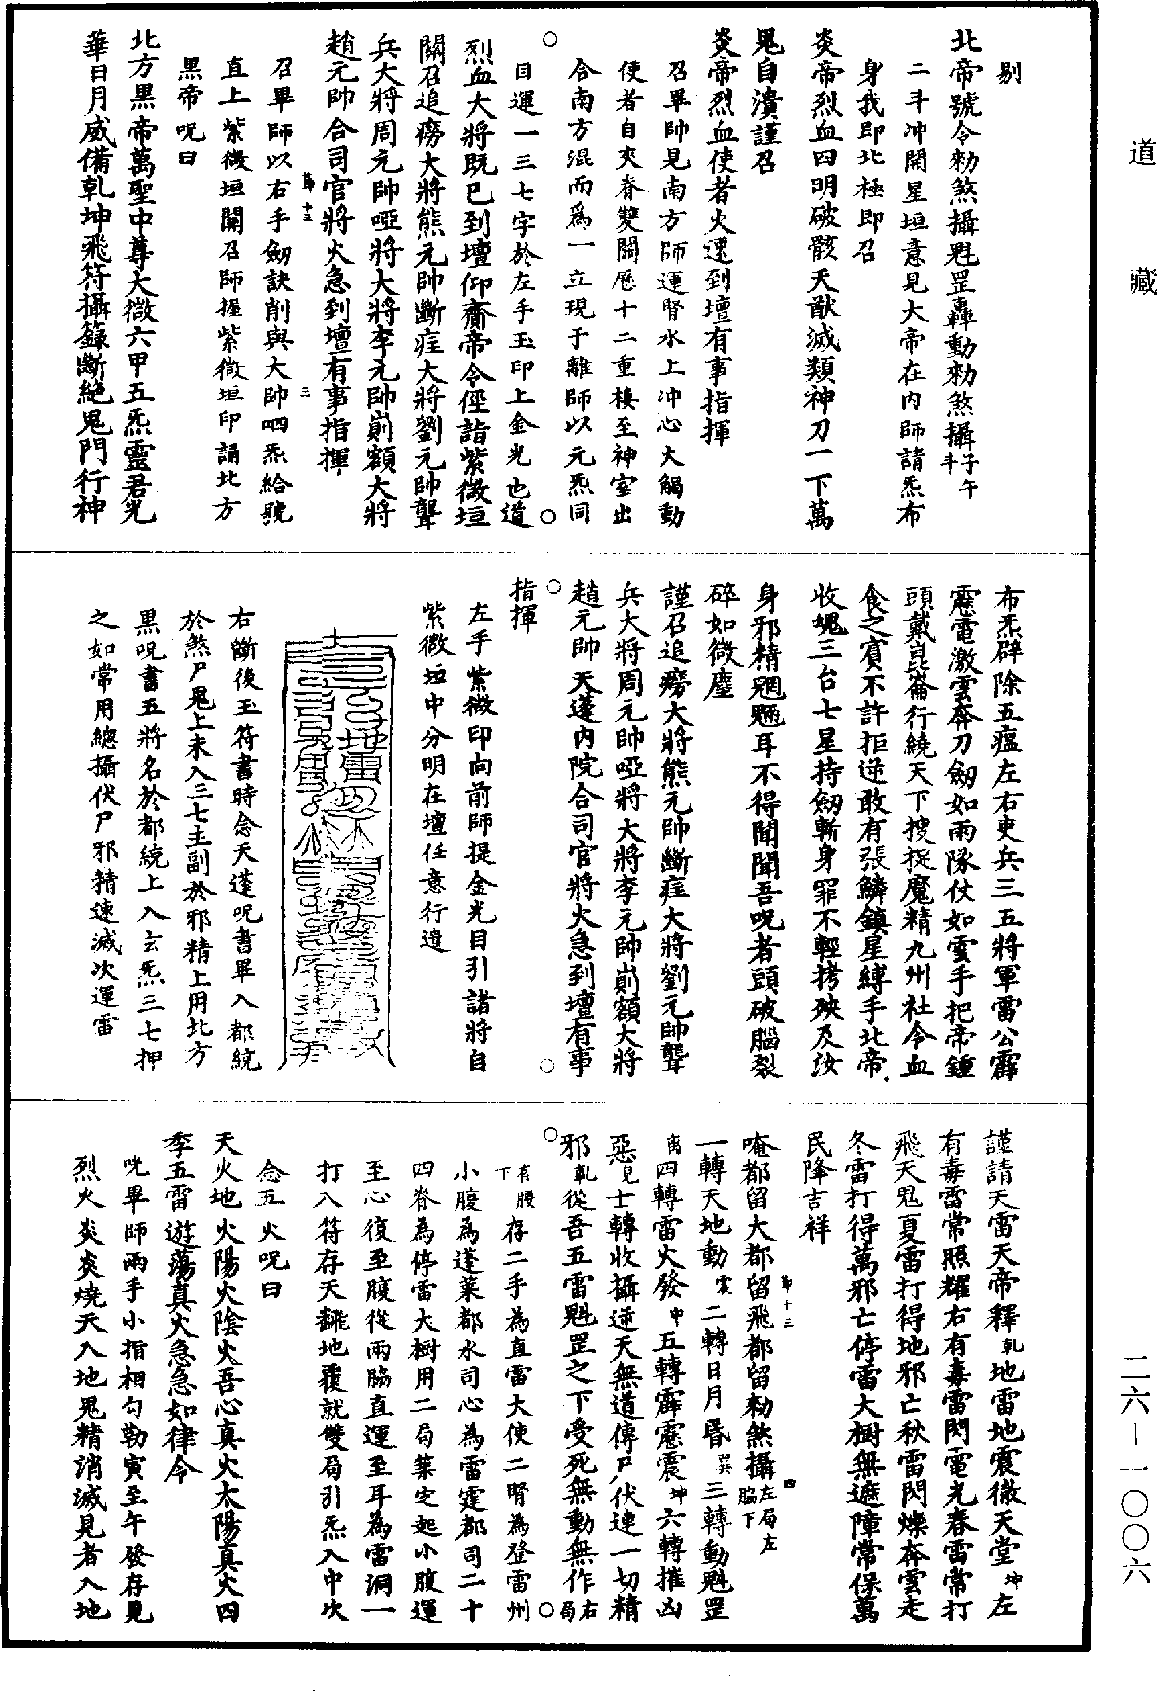 道藏
剔
北帝號令勑煞攝魁罡轟動勑煞攝子午斗
二斗冲開星垣意見大帝在內師請炁布
身我即北極即召
炎帝烈血四明破骸天猷滅類神刀一下萬
鬼自潰謹召
炎帝烈血使者火速到壇有事指揮
召畢帥見南方師運腎水上冲心火觸動
使者自夾脊雙關歷十二重樓至神室出
合南方混而為一立現于離師以元炁同
目運一三七字於左手玉印上金光也道
烈血大將既已到壇仰齎帝令徑詣紫微垣
關召追癆大將熊元帥斷痓大將劉元帥聾
兵大將周元帥啞將大將李元帥剆額大將
趙元帥合司官將火急到壇有事指揮
第十三
三
召畢師以右手劒訣削與大帥呬炁給號
直上紫微垣關召師握紫微垣印誦北方
黑帝呪曰
北方黑帝萬聖中尊大微六甲五炁靈君光
華日月威備乾坤飛符攝籙斷絕鬼門行神
布炁辟除五瘟左右吏兵三五將軍雷公霹
靂電激雲奔刀劒如雨隊仗如雲手把帝鍾
頭戴崑崙行繞天下搜捉魔精九州社令血
食之賓不許拒逆敢有張鱗鎮星縛手北帝
收魂三台七星持劒斬身罪不輕拷殃及汝
身邪精魍魎耳不得聞聞吾呪者頭破腦裂
碎如微塵
謹召追癆大將熊元帥斷痓大將劉元帥聾
兵大將周元帥啞將大將李元帥剆額大將
趙元帥天蓬內院合司官將火急到壇有事
指揮
左手紫微印向前師提金光目引諸將自
紫微垣中分明在壇任意行遣
右斷後玉符書時念天蓬呪書畢入都統
於煞尸鬼上末入三七主副於邪精上用北方
黑呪書五將名於都統上入玄炁三七押
之如常用總攝伏尸邪精速滅次運雷
謹請天雷天帝釋乾地雷地震徹天堂坤左
有毒雷常照耀右有毒雷閃電光春雷常打
飛天鬼夏雷打得地邪亡秋雷閃爍奔雲走
冬雷打得萬邪亡停雷大樹無遮障常保萬
民降吉祥
第十三
四
唵都留大都留飛都留勑煞攝左局左脇下
一轉天地動震二轉日月昏巽三轉動魁罡
离四轉雷火發中五轉霹靂震坤六轉摧凶
惡見士轉收攝逆天無道傳尸伏連一切精
邪乾從吾五雷魁罡之下受死無動無作右局
右腹下存二手為直雷大使二腎為登雷州
小腹為蓬萊都水司心為雷霆都司二十
四脊為停雷大樹用二局葉定起小腹運
至心復至腹從兩脇直運至耳為雷洞一
打入符存天翻地覆就雙局引炁入中次
念五火呪曰
天火地火陽火陰火吾心真火太陽真火四
季五雷遊蕩真火急急如律令
呪畢師兩手小指相勾勒寅至午發存見
烈火炎炎燒天入地鬼精消滅見者入地
二六—一〇〇六